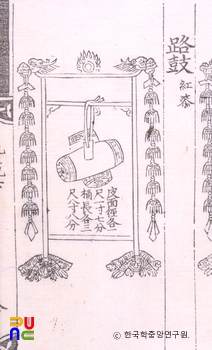 路鼓
紅
皮面徑各一
尺一寸七分
桶長各三
尺寸八分
© 한국학중앙연구원.